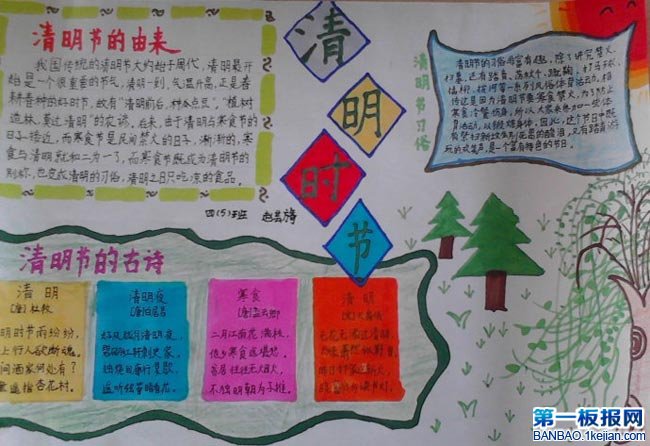 清明节的由来
我国传统的清明节大约始于周代，清明最开
始是一个很重要的节气，清明一到，气温升高，正是春
耕春种的好时节，故有“清明前后，种瓜点豆”，“植树
造林，莫过清明”的农谚。后来，由于清明与寒食节的
日子接近，而寒食节是民间禁火的日子，渐渐的，寒
食与清明就和二为一了，而寒食节既成为清明节的
别称，也变成清明的习俗，清明之日只吃凉的食品。
四(5)班
清
明
时
节
清明节习俗
清明节的习俗非常有趣，除了讲究禁火、
扫墓，还有踏青、荡秋千、蹴鞠、打马球、
插柳、拔河等一系列风俗体育活动。相
传这是因为清明节要寒食禁火，为了防止
寒食冷餐伤身，所以大家来参加一些体
育活动，以锻炼身体。因此，这个节日中既
有祭扫新坟
的酸泪，又有踏青游
玩的欢笑声，是一个富有特色的节日。
清明节的古诗
清明
杜牧
明时节雨纷纷，
上行人欲断魂。
问酒家何处有？
童遥指杏花村。
清明夜
白居易
好风胧月清明夜，
碧砌红轩刺史家。
独绕回廊行复歇，
遥听弦管暗看花。
寒食
孟云卿
二月江南花满枝，
他乡寒食远堪悲。
贫居往往无烟火，
不独明朝为子推。
清明
无花无酒过清明，
第一板报网
BANBAO.1kejian.com